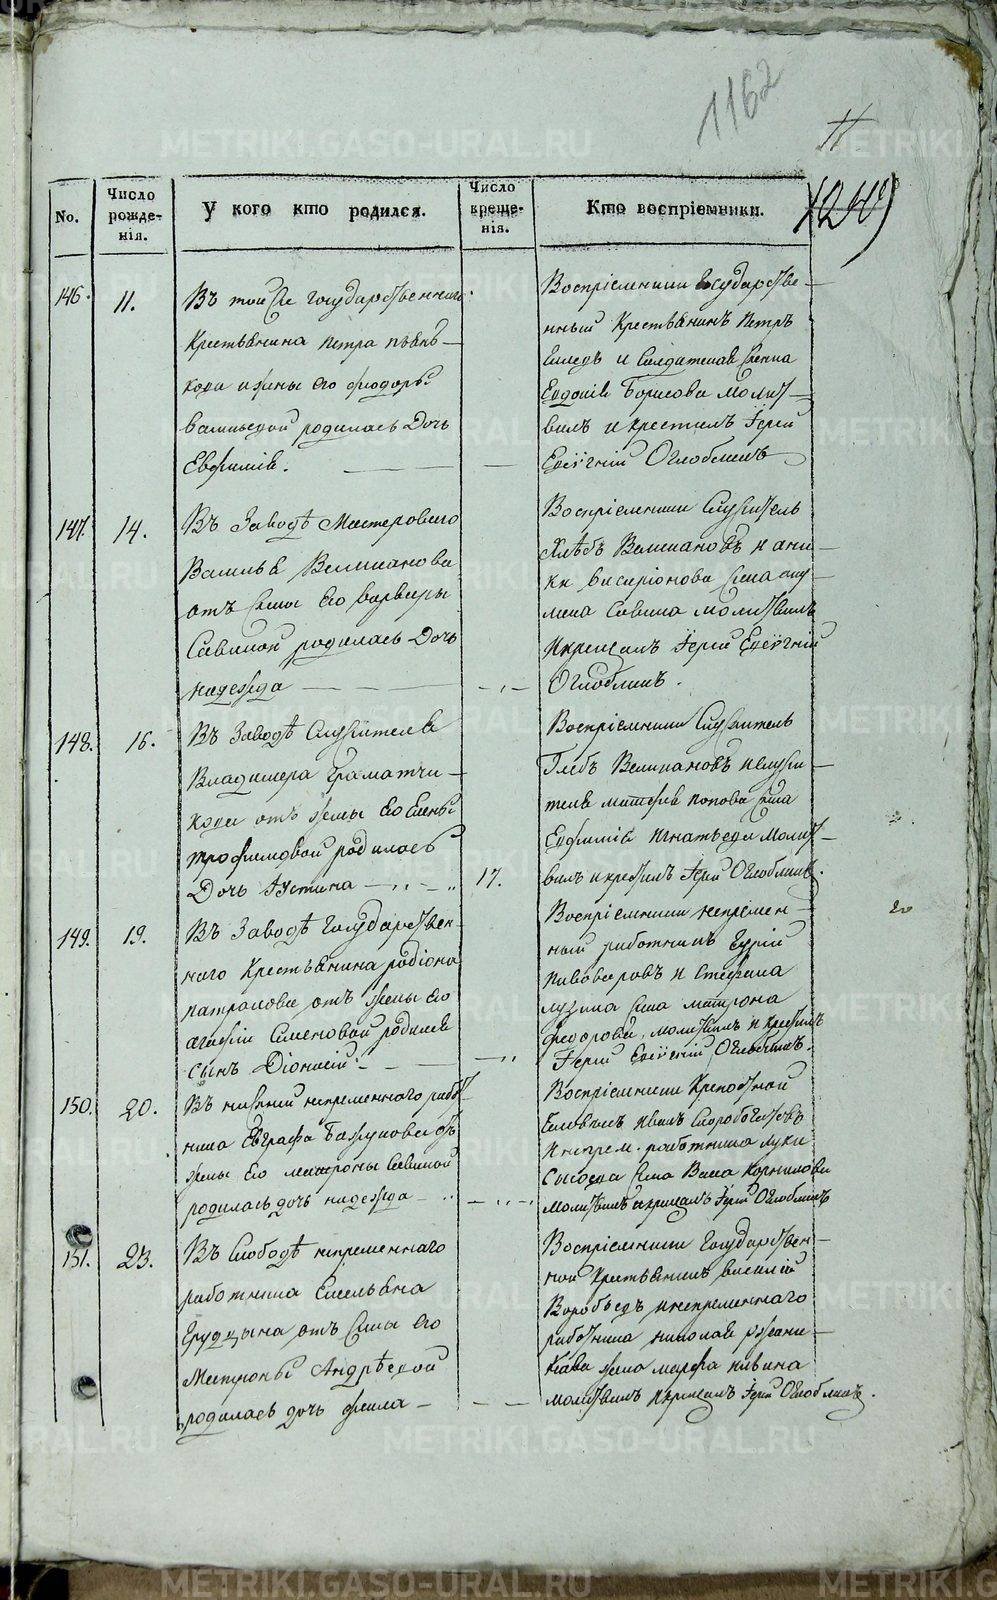 1162
11
No.
Число рожде-нія.
У кого кто родился.
Число креще-нія.
Кто воспріемники.
146.
11.
Въ той же государственнаго
Крестьянина Петра
кова жены его Федоры
родилась Дочь
Евфимія.
Воспріемники Государстве-
нный Крестьянинъ Петръ
и Солдатская жена
Евдокія Борисова молит-
вилъ и крестилъ Іерей
Евгеній Оглоблинъ
147.
14.
Въ Заводѣ Мастероваго
Василья Великанова
отъ жены Его Варвары
Савиной родилась Дочь
надежда
Воспріемники Служитель
Хлѣбъ Великановъ и ани-
ки Висаріонова жена аку-
лина Савина молитвилъ
и крещалъ Іерей Евгеній
Оглоблинъ.
148.
16.
Въ Заводѣ Служителя
Владимера Граматчи-
кова отъ жены Его Елены
трофимовой родилась
Дочь Устина
17.
Воспріемники Служитель
Глебъ Великановъ и служи-
теля матфея попова жена
Евфимія Игнатьева Молит-
вилъ и крестилъ Іерей Оглоблинъ.
149.
19.
Въ Заводѣ Государствен-
наго Крестьянина родіона
патракова отъ жены Его
агафіи Семеновой родился
сынъ Діонисій
Воспріемники непремен-
ный работникъ Гурій
Пивоваровъ и Стефана
лузина жена матрона
федорова, молитвилъ и крестилъ
Іерей Евгеній Оглоблинъ.
150.
20.
Въ нижней непременнаго рабо-
ника Евграфа Бажукова отъ
жены Его матроны Савиной
родилась дочь надежда
Воспріемники Крепостной
Еловкинъ Иванъ Скоробогатовъ
и непрем. работника луки
Сысоева жена Васа Корнилова
молитвилъ и крещалъ Іерей Оглоблинъ
151.
23.
Въ Слободѣ непременнаго
работника Емельяна
Ерудцына отъ жены Его
Матроны Андрѣевой
родилась дочь фекла
Воспріемники Государствен-
ной Крестьянинъ василій
Воробьевъ и непременнаго
работника николая ржани-
кова жена марфа кивина
молитвилъ и крещалъ Іерей Оглоблинъ.
METRIKI.GASO-URAL.RU